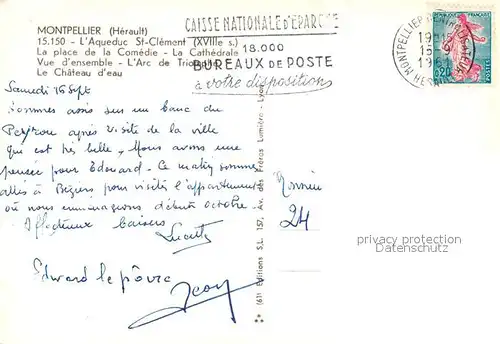 MONTPELLIER (Hérault)
15.150 - L'Aqueduc St-Clément (XVIIIe s.)
La place de la Comédie - La Cathédrale
Vue d'ensemble - L'Arc de Triomphe
Le Château d'eau
CAISSE NATIONALE D'EPARGNE
18.000
BUREAUX DE POSTE
à votre disposition
MONTPELLIER
19
15 - 9
1961
HERAULT
POSTES FRANÇAISE
0,20
Samedi 16 Sept
Sommes assis sur un banc du
Peyrou après visite de la ville
qui est très belle, Nous avons une
pensée pour Edouard. Ce matin sommes
allés à Béziers pour visiter l'appartement
où nous emménageons début octobre.
Affectueux baisers
Edward le pôvre
Jean
Monsieur
24
(61) Editions S.L. 157, Av. des Frères Lumière - Lyon
privacy protection
oldthing.de